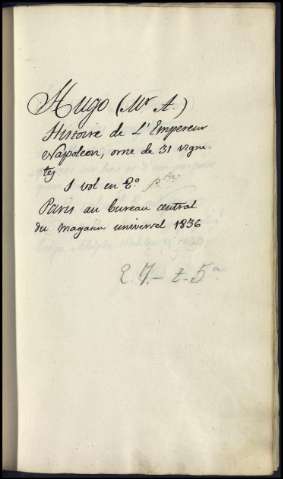 Hugo (Mr A.)
Histoire de L'Empereur
Napoleon, orné de 31 vigne-
tes
1 vol en 8°
Paris au bureau central
du magasin universel 1836
E. 7. - t. 5